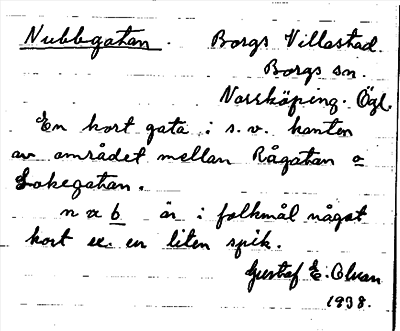 Nubbgatan. Borgs Villastad.
Borgs sn.
Norrköping. Ögl.
En kort gata i s.v. kanten
av området mellan Rågatan o
Lokegatan.
n a b är i folkmål något
kort ex. en liten spik.
Gustaf E. Olsan
1938.